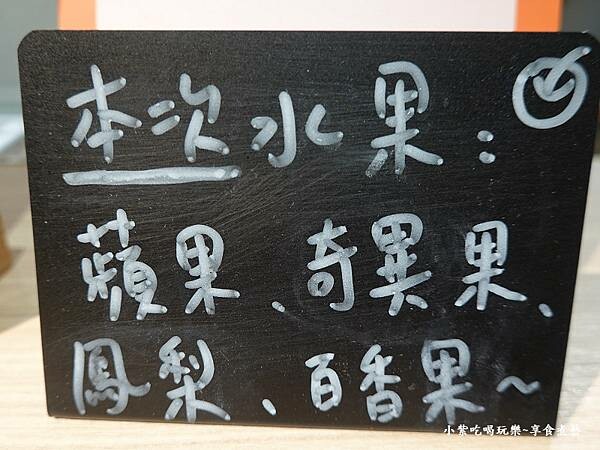 本次水果:
蘋果、奇異果、
鳳梨、百香果~
小紫吃喝玩樂~享食煮藝